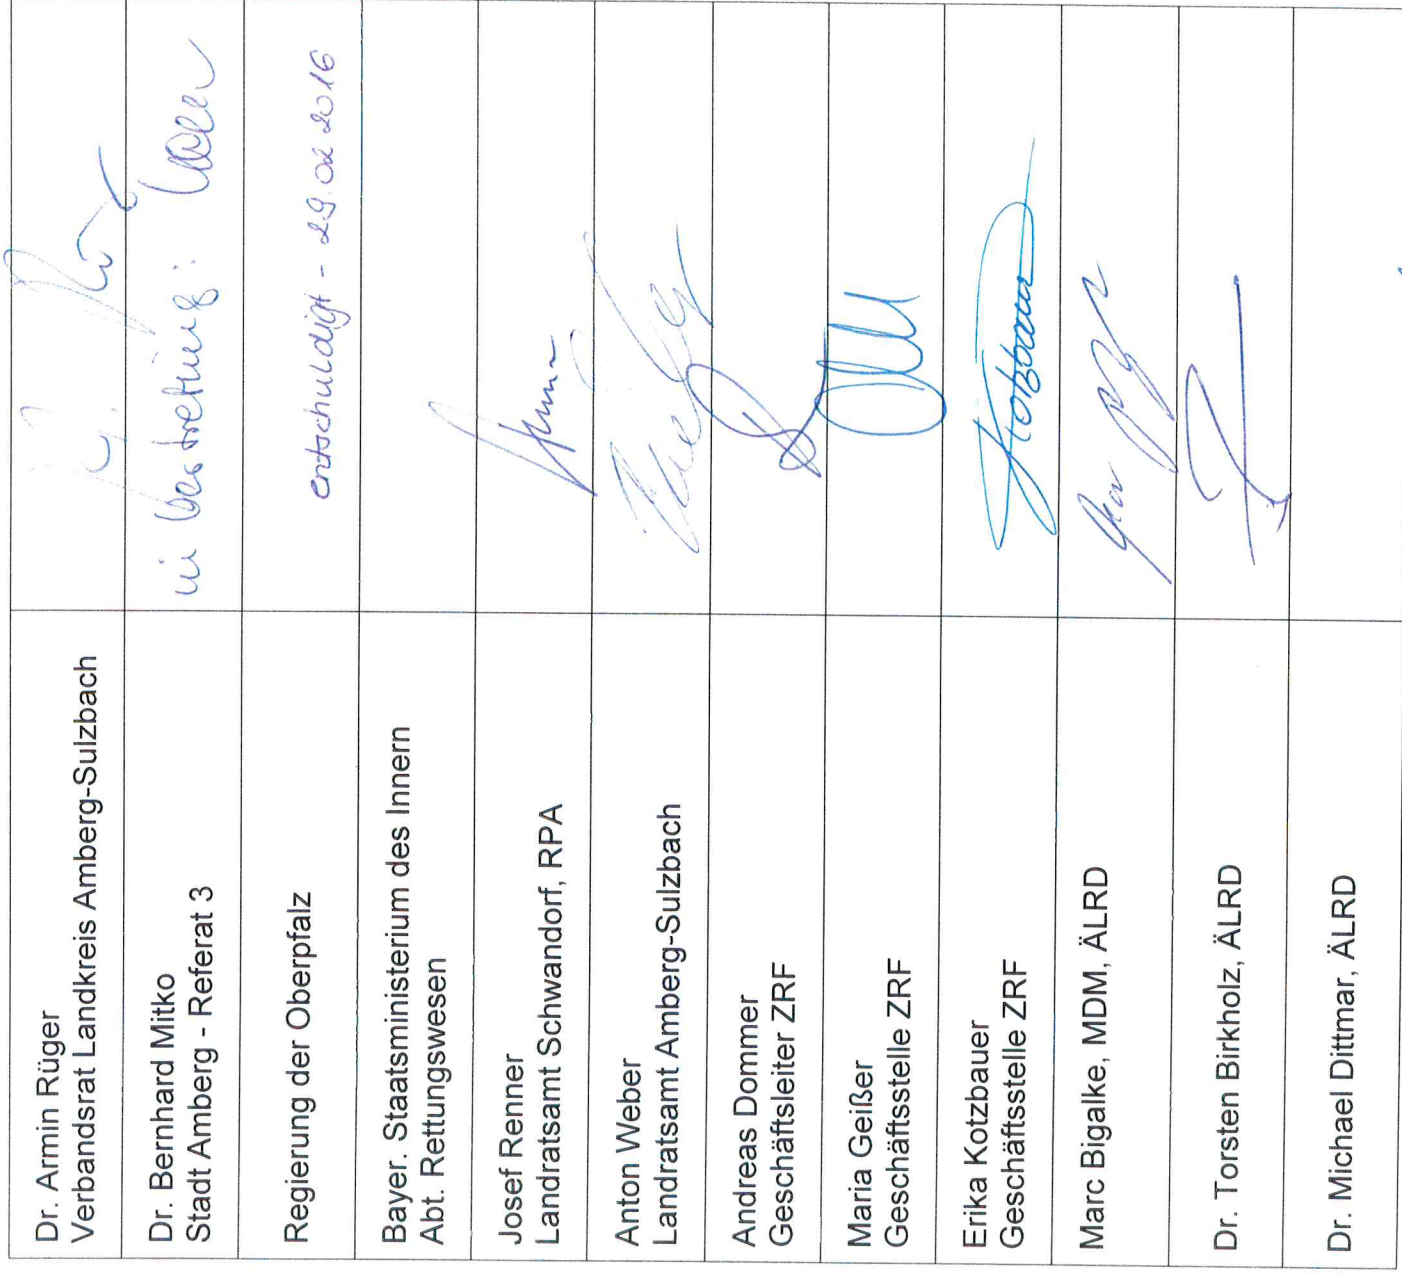 Dr. Armin Rüger
Verbandsrat Landkreis Amberg-Sulzbach
Dr. Bernhard Mitko
Stadt Amberg - Referat 3
in Vertretung:
Regierung der Oberpfalz
entschuldigt - 29.02.2016
Bayer. Staatsministerium des Innern
Abt. Rettungswesen
Josef Renner
Landratsamt Schwandorf, RPA
Anton Weber
Landratsamt Amberg-Sulzbach
Andreas Dommer
Geschäftsleiter ZRF
Maria Geißer
Geschäftsstelle ZRF
Erika Kotzbauer
Geschäftsstelle ZRF
Kotzbauer
Marc Bigalke, MDM, ÄLRD
Dr. Torsten Birkholz, ÄLRD
Dr. Michael Dittmar, ÄLRD